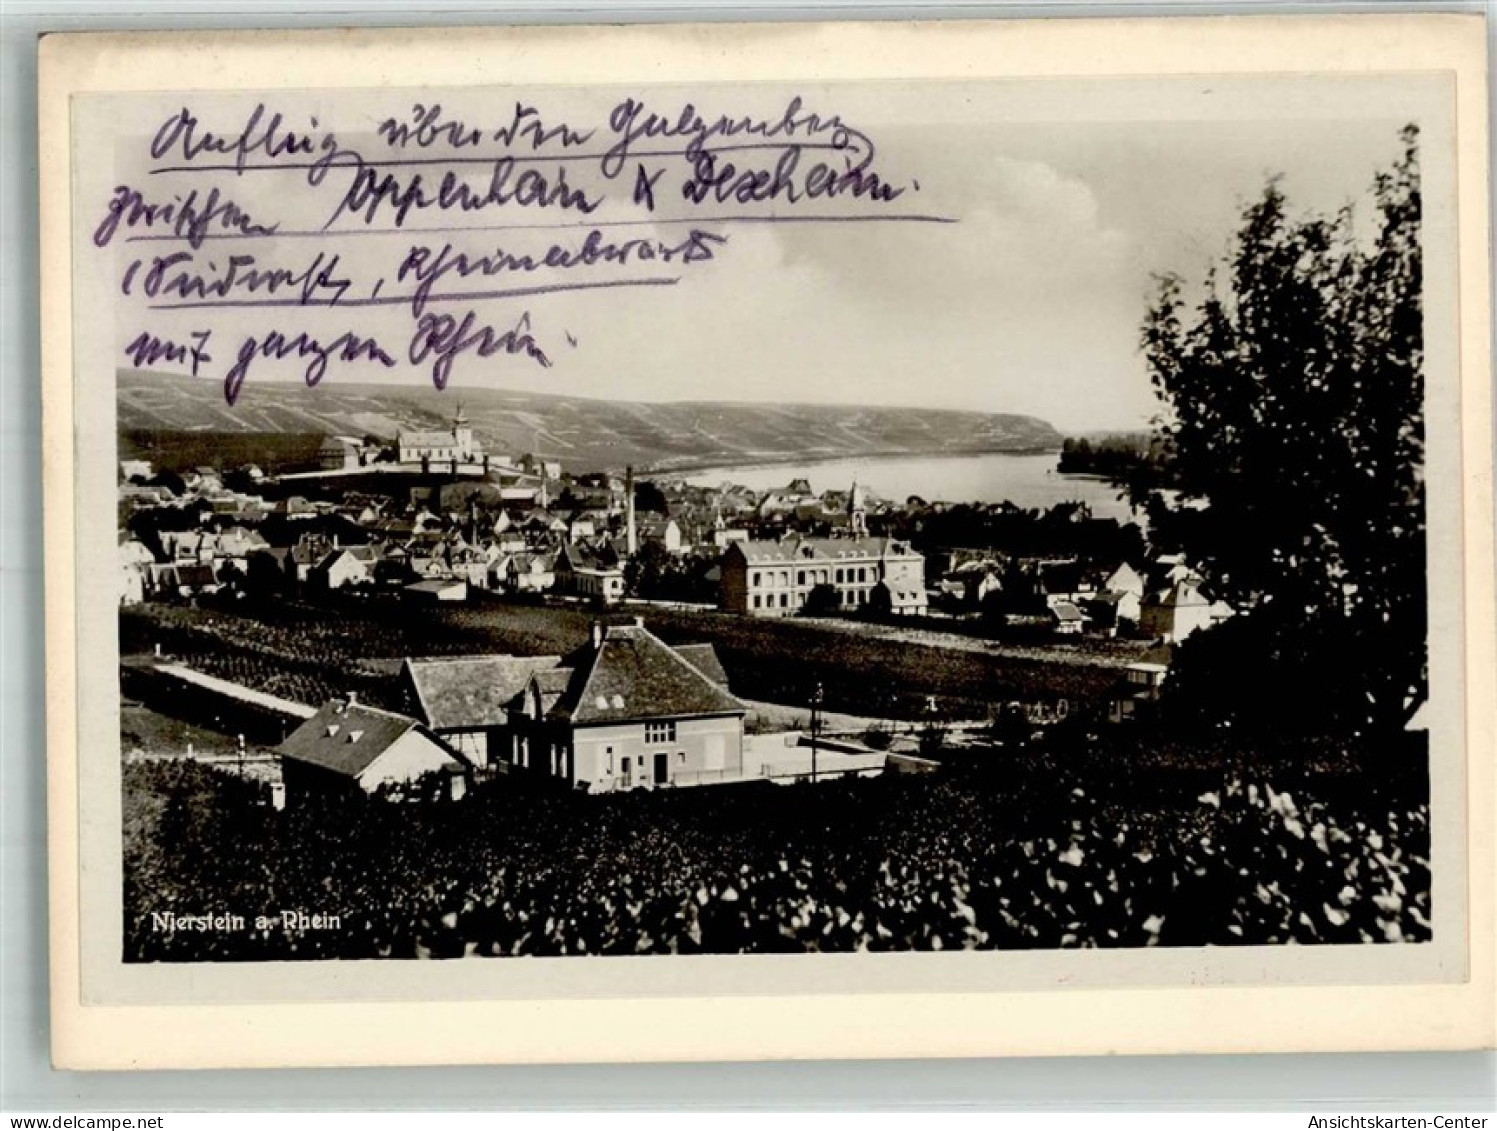 Anflug über den Galgenberg
zwischen Oppenheim & Dexheim.
(Südwest, Rheinabwärts
mit ganzen Rhein.
Nierstein a. Rhein
Ansichtskarten-Center